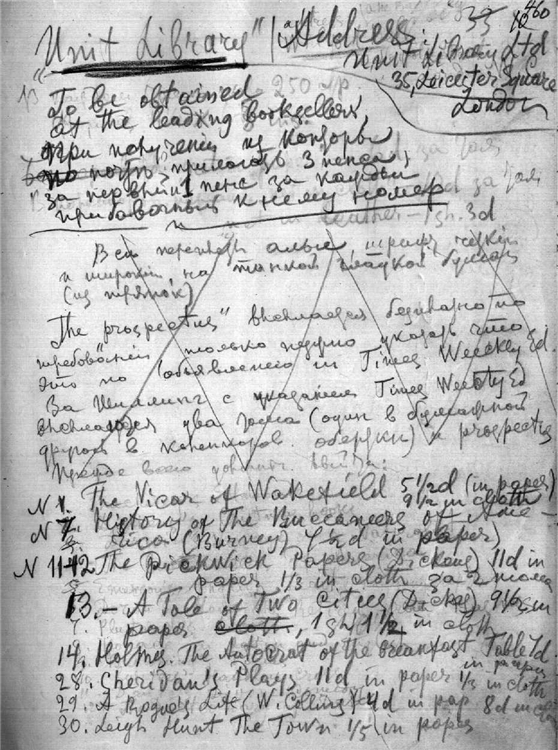 "Unit Library" | Address:
Unit Library Ltd
35, Leicester Square
London
To be obtained
at the leading booksellers,
при получении из конторы
по почте прилагать 3 пенса,
за первый 1 пенс за каждый
прибавочный к нему номер
Все переплеты алые, шрифт четкий
и широкий на тонкой гладкой бумаге
The prospectus высылается бесплатно по
требованию только нужно указать что
это по объявлению in Times Weekly Ed.
За шиллинг с указанием Times Weekly Ed
высылаются два тома (один в бумажной
другой в обертки) и prospectus
Прежде всего
N 1. The Vicar of Wakefield 5 1/2d (in paper)
9 1/2 in cloth
N 7. History of The Buccaneers of Ame-
rica (Burney) (in paper)
N 11-12 The Pickwick Papers (Dickens) 11d in
paper 1/3 in cloth за 2 тома
13. - A Tale of Two Cities (Dickens) 9 1/2 in
paper cloth, 1sh 1 1/2 in cloth
14. Holmes. The Autocrat of the Breakfast Table 7d.
in paper
28. Sheridan's Plays 11d in paper 1/3 in cloth
29. A Rogue's Life (W. Collins) 4d in pap. 8d in
30. Leigh Hunt The Town 1/5 in paper